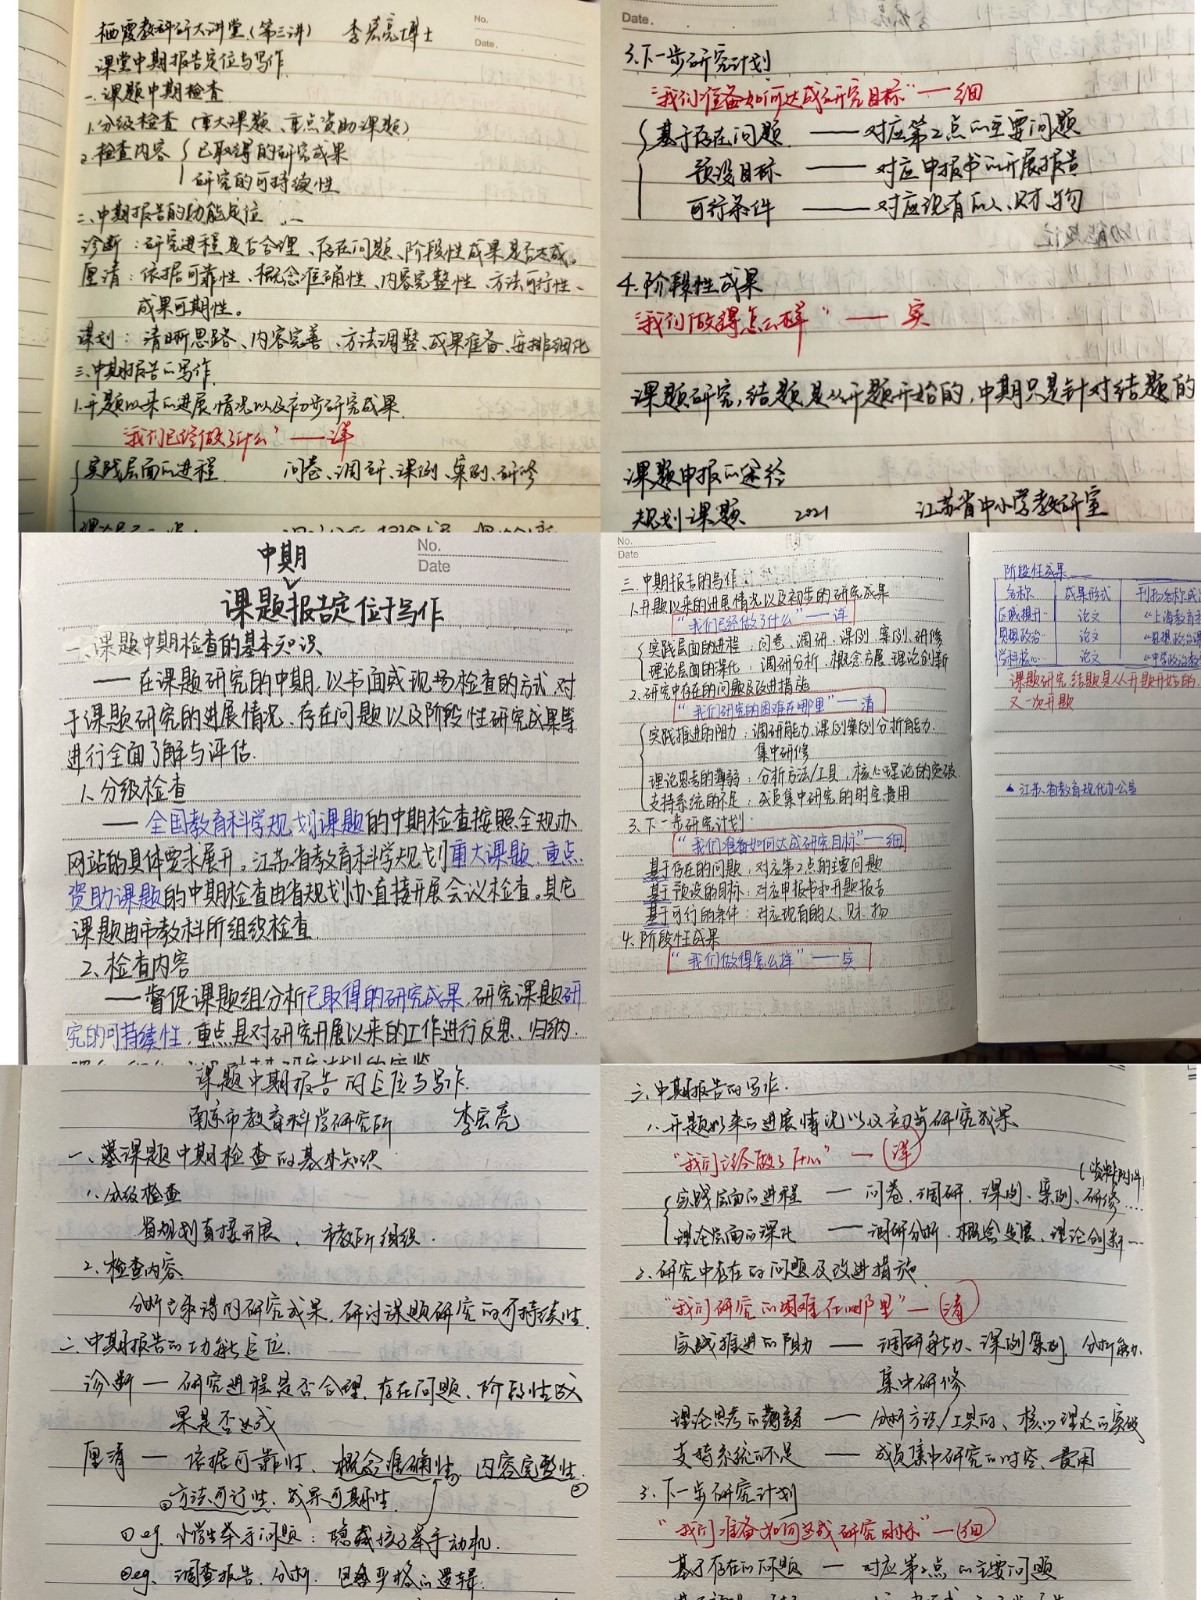 栖霞教科研大讲堂(第三讲) 李宏亮博士
No.
Date.
课堂中期报告定位与写作
一.课题中期检查
1.分级检查 (重大课题、重点资助课题)
2.检查内容 已取得的研究成果
研究的可持续性
二.中期报告的功能定位
诊断:研究进程是否合理、存在问题、阶段性成果是否达成。
厘清:依据可靠性、概念准确性、内容完整性、方法可行性、
成果可期性。
谋划:清晰思路、内容完善、方法调整、成果准备、安排细化
三、中期报告的写作
1.开题以来的进展情况以及初步研究成果.
"我们已经做了什么"——详
实践层面的进程 问卷、调研、课例、案例、研修
Date.
3.下一步研究计划
"我们准备如何达成研究目标"——细
基于存在问题 —— 对应第2点的主要问题
预设目标 —— 对应申报书的开展报告
可行条件 —— 对应现有的人、财、物
4.阶段性成果
"我们做得怎么样"——实
课题研究,结题是从开题开始的,中期只是针对结题的
课题申报的途径
规划课题 2021 江苏省中小学教研室
No.
Date
中期
课题报告定位与写作
一、课题中期检查的基本知识
——在课题研究的中期,以书面或现场检查的方式,对
于课题研究的进展情况、存在问题以及阶段性研究成果等
进行全面了解与评估.
1.分级检查
——全国教育科学规划课题的中期检查按照全规办
网站的具体要求展开。江苏省教育科学规划重大课题、重点
资助课题的中期检查由省规划办直接开展会议检查。其它
课题由市教科所组织检查.
2.检查内容
——督促课题组分析已取得的研究成果,研究课题研
究的可持续性,重点是对研究开展以来的工作进行反思、归纳.
No.
Date
三.中期报告的写作
1.开题以来的进展情况以及初步的研究成果
"我们已经做了什么"——详
实践层面的进程:问卷、调研、课例、案例、研修
理论层面的深化:调研分析、概念发展、理论创新
2.研究中存在的问题及改进措施
"我们研究的困难在哪里"——清
实践推进的阻力:调研能力、课例案例分析能力、
集中研修
理论思考的薄弱:分析方法/工具、核心理论的突破
支持系统的不足:成员集中研究的时空、费用
3.下一步研究计划
"我们准备如何达成研究目标"——细
基于存在的问题:对应第2点的主要问题
基于预设的目标:对应申报书和开题报告
基于可行的条件:对应现有的人、财、物
4.阶段性成果
"我们做得怎么样"——实
阶段性成果
名称 成果形式 刊物名称或
论文 《上海教育
思想政治 论文 《思想政治课
学科核心 论文 《中学政治教
课题研究,结题是从开题开始的,
又一次开题
▲江苏省教育现代办公室
课题中期报告的定位与写作.
南京市教育科学研究所 李宏亮
一、课题中期检查的基本知识
1.分级检查
省规划直接开展、市教所组织.
2.检查内容
分析已取得的研究成果,研讨课题研究的可持续性.
二、中期报告的功能定位.
诊断—研究进程是否合理、存在问题、阶段性成
果是否达成
厘清—依据可靠性、概念准确性、内容完整性.
方法可行性、成果可期性.
①eg.小学生举手问题:隐藏孩子举手动机.
②eg.调查报告.分析.
三.中期报告的写作.
1.开题以来的进展情况以及初步研究成果
"我们已经做了什么"—详
(资料附件)
实践层面的进程——问卷、调研、课例、案例、研修……
理论层面的深化——调研分析、概念发展、理论创新…
2.研究中存在的问题及改进措施.
"我们研究的困难在哪里"—清
实践推进的阻力——调研能力、课例案例、分析能力.
集中研修
理论思考的薄弱——分析方法/工具的、核心理论的突破
支持系统的不足——成员集中研究的时空、费用
3.下一步研究计划
"我们准备如何达成研究目标"—细
基于存在的问题——对应第2点的主要问题